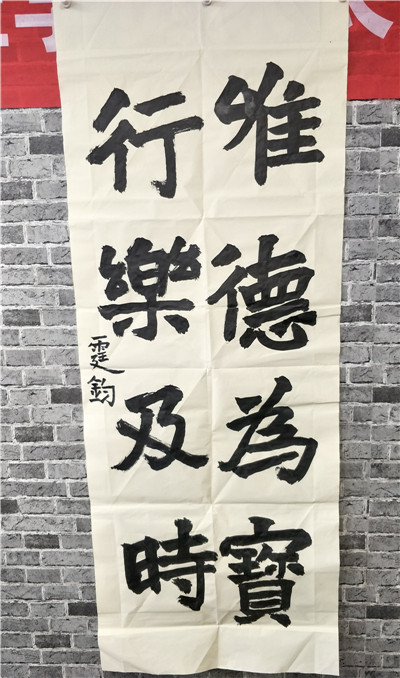 唯德為寶
行樂及時
霆鈞